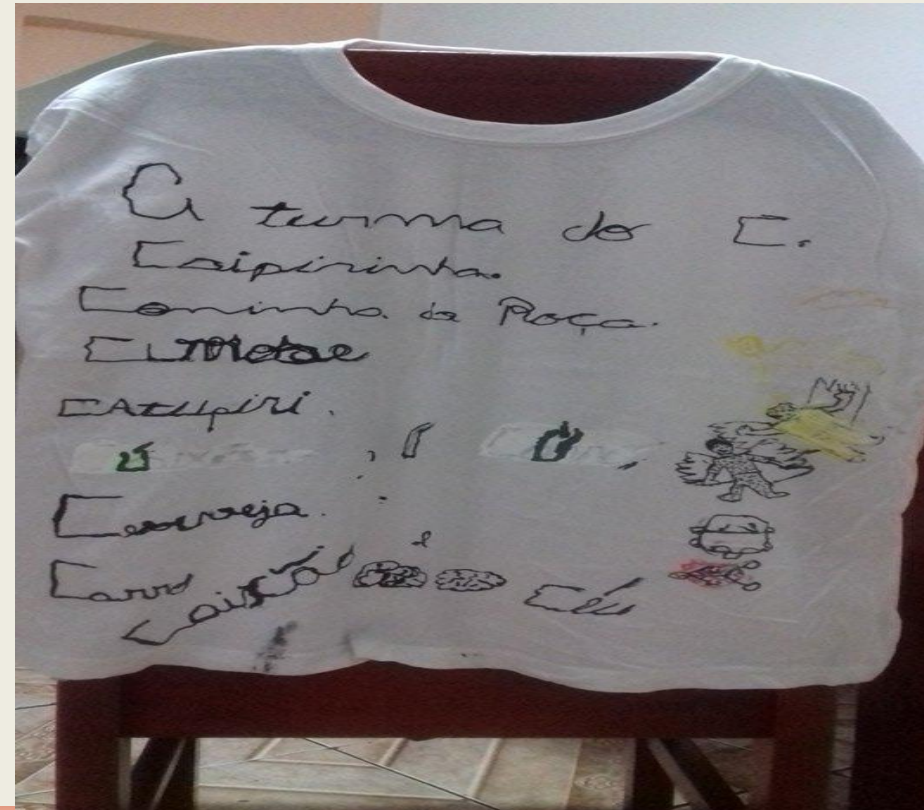 A turma do C.
Caipirinha.
Caminho da Roça.
CAtupiri.
Cerveja.
Carro Caixão e Céu